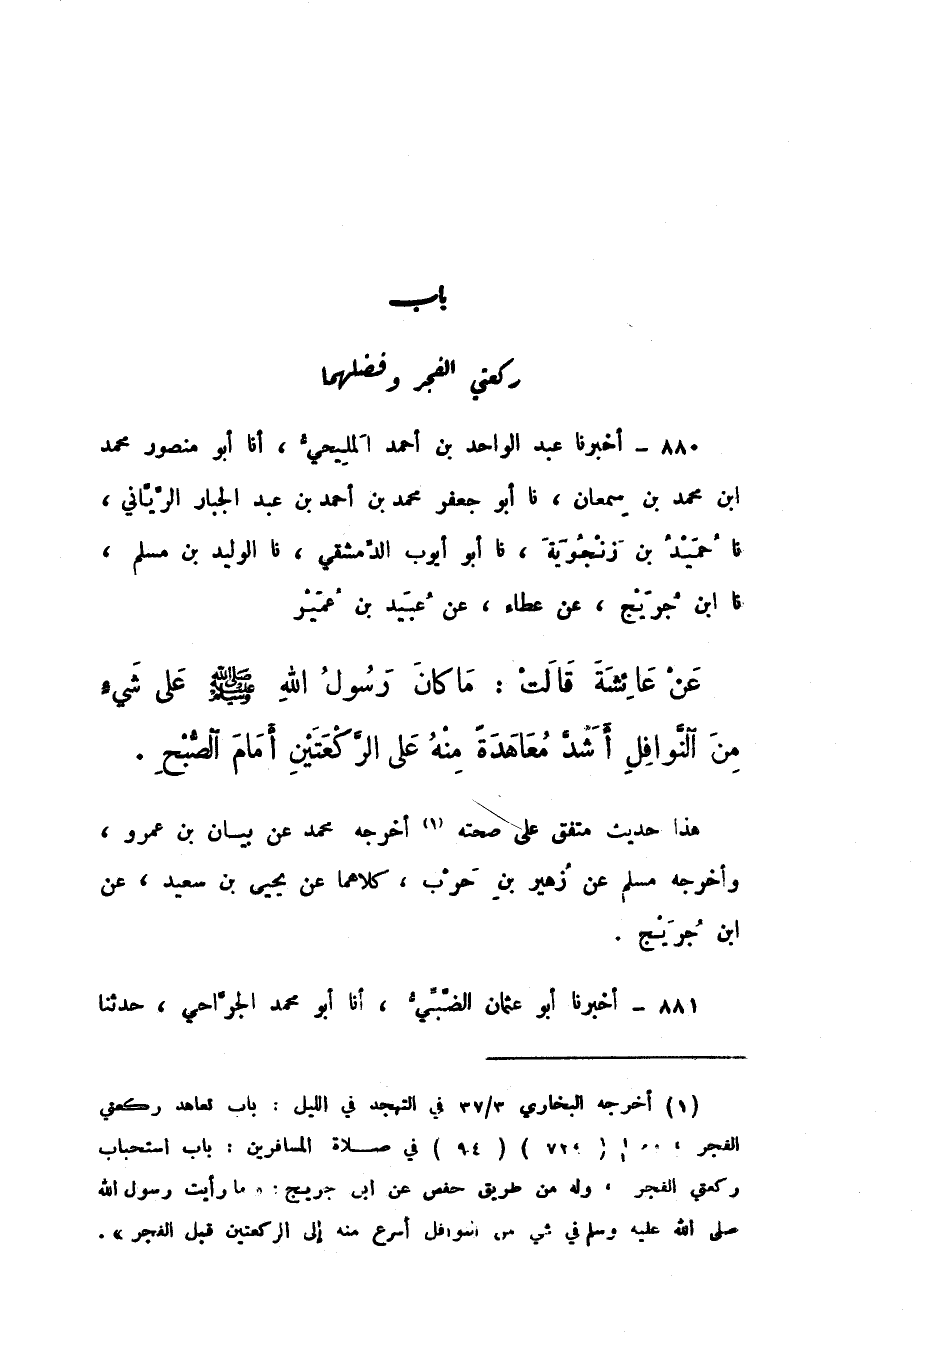 باب
ركعتي الفجر وفضلهما
٨٨٠ – أخبرنا عبد الواحد بن أحمد المَلِيحيُّ ، أنا أبو منصور محمد
ابن محمد بن سِمعان ، نا أبو جعفر محمد بن أحمد بن عبد الجبار الرَّيَّاني ،
نا حُمَيْدُ بن زَنْجُوَيةَ ، نا أبو أيوب الدِّمشقي ، نا الوليد بن مسلم ،
نا ابن جُرَيْج ، عن عطاء ، عن عُبَيد بن عُمَيْر
عَنْ عَائِشَةَ قَالَتْ : مَا كَانَ رَسُولُ اللهِ ﷺ عَلى شَيءٍ
مِنَ ٱلنَّوافِلِ أَشَدَّ مُعَاهَدَةً مِنْهُ عَلى الرَّكْعَتَيْنِ أَمَامَ ٱلصُّبْحِ .
هذا حديث متفق على صحته (١) أخرجه محمد عن بيـان بن عمرو ،
وأخرجه مسلم عن زُهير بنِ حَرْب ، كلاهما عن يحيى بن سعيد ، عن
ابن جُرَيْج .
٨٨١ – أخبرنا أبو عثمان الضَّبِّيُّ ، أنا أبو محمد الجرَّاحي ، حدثنا
(١) أخرجه البخاري ٣٧/٣ في التهجد في الليل : باب تعاهد ركعتي
الفجر ، ( ٧٢٤ ) ( ٩٤ ) في صـلاة المسافرين : باب استحباب
ركعتي الفجر ، وله من طريق حفص عن ابن جريج : « ما رأيت رسول الله
صلى الله عليه وسلم في شي من النوافل أسرع منه إلى الركعتين قبل الفجر » .